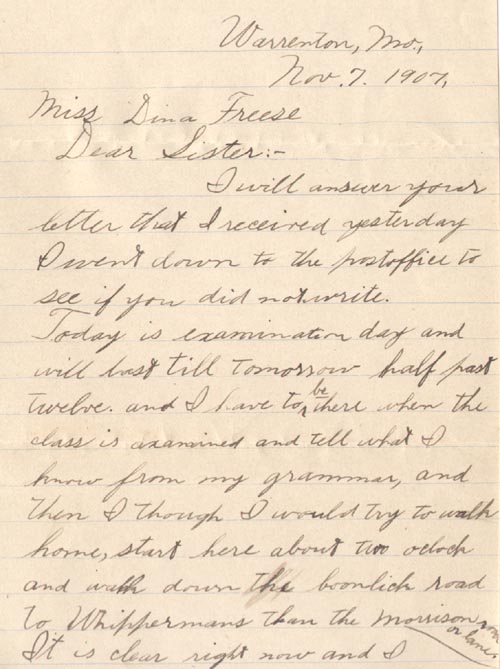 Warrenton, Mo.,
Nov. 7. 1907.
Miss Dina Freese
Dear Sister:-
I will answer your
letter that I received yesterday
I went down to the postoffice to
see if you did not write.
Today is examination day and
will last till tomorrow half past
twelve. and I have to be there when the
class is examined and tell what I
know from my grammar, and
then I though I would try to walk
home, start here about two oclock
and walk down the boonlick road
to Whippermans than the Morrison
or lane.
It is clear right now and I